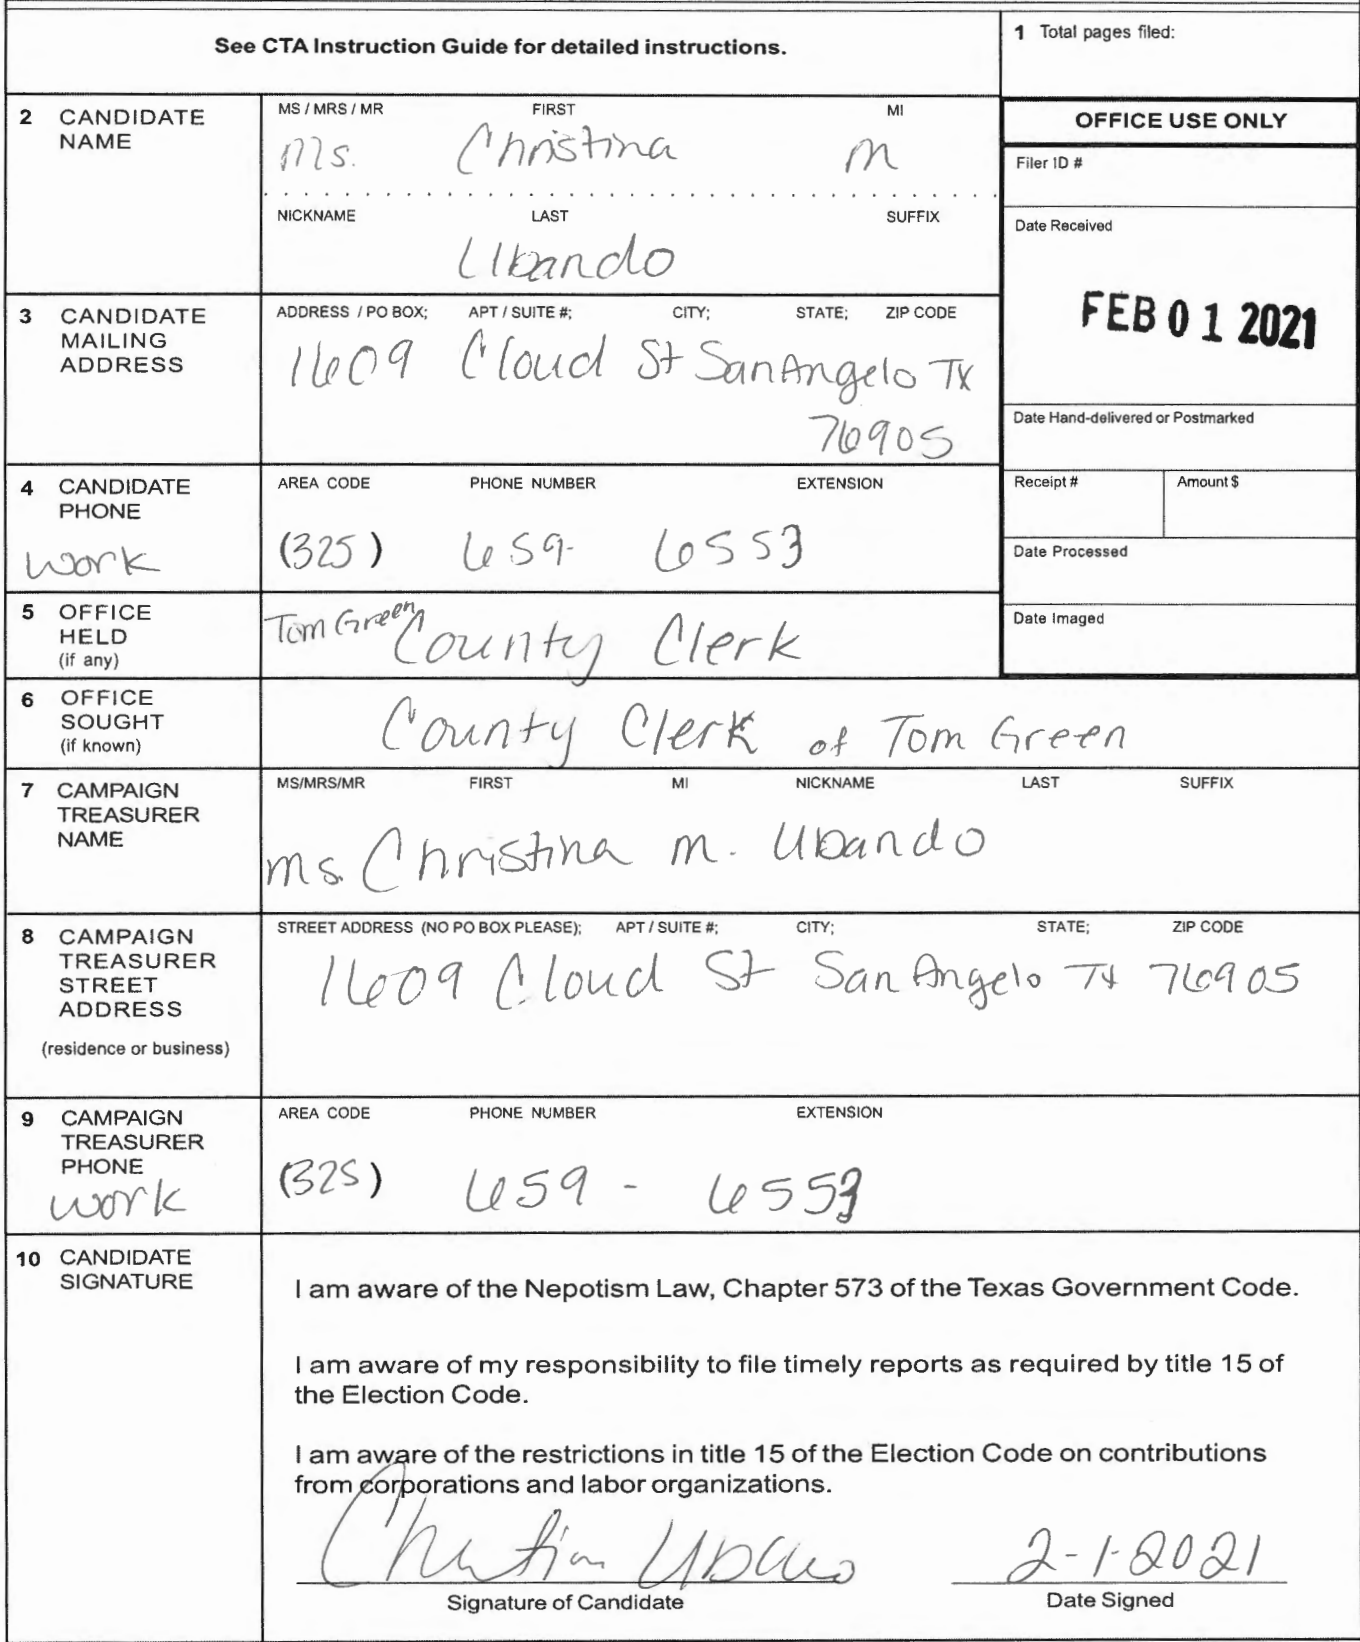 See CTA Instruction Guide for detailed instructions.
1 Total pages filed:
2 CANDIDATE NAME
MS / MRS / MR FIRST MI
Ms. Christina M
NICKNAME LAST SUFFIX
Ubando
OFFICE USE ONLY
Filer ID #
Date Received
FEB 01 2021
Date Hand-delivered or Postmarked
Receipt # Amount $
Date Processed
Date Imaged
3 CANDIDATE MAILING ADDRESS
ADDRESS / PO BOX; APT / SUITE #; CITY; STATE; ZIP CODE
1609 Cloud St San Angelo TX
76905
4 CANDIDATE PHONE
work
AREA CODE PHONE NUMBER EXTENSION
(325) 659- 6553
5 OFFICE HELD (if any)
Tom Green County Clerk
6 OFFICE SOUGHT (if known)
County Clerk of Tom Green
7 CAMPAIGN TREASURER NAME
MS/MRS/MR FIRST MI NICKNAME LAST SUFFIX
Ms. Christina M. Ubando
8 CAMPAIGN TREASURER STREET ADDRESS
(residence or business)
STREET ADDRESS (NO PO BOX PLEASE); APT / SUITE #; CITY; STATE; ZIP CODE
1609 Cloud St San Angelo TX 76905
9 CAMPAIGN TREASURER PHONE
work
AREA CODE PHONE NUMBER EXTENSION
(325) 659 - 6553
10 CANDIDATE SIGNATURE
I am aware of the Nepotism Law, Chapter 573 of the Texas Government Code.
I am aware of my responsibility to file timely reports as required by title 15 of
the Election Code.
I am aware of the restrictions in title 15 of the Election Code on contributions
from corporations and labor organizations.
Christina Ubando 2-1-2021
Signature of Candidate Date Signed